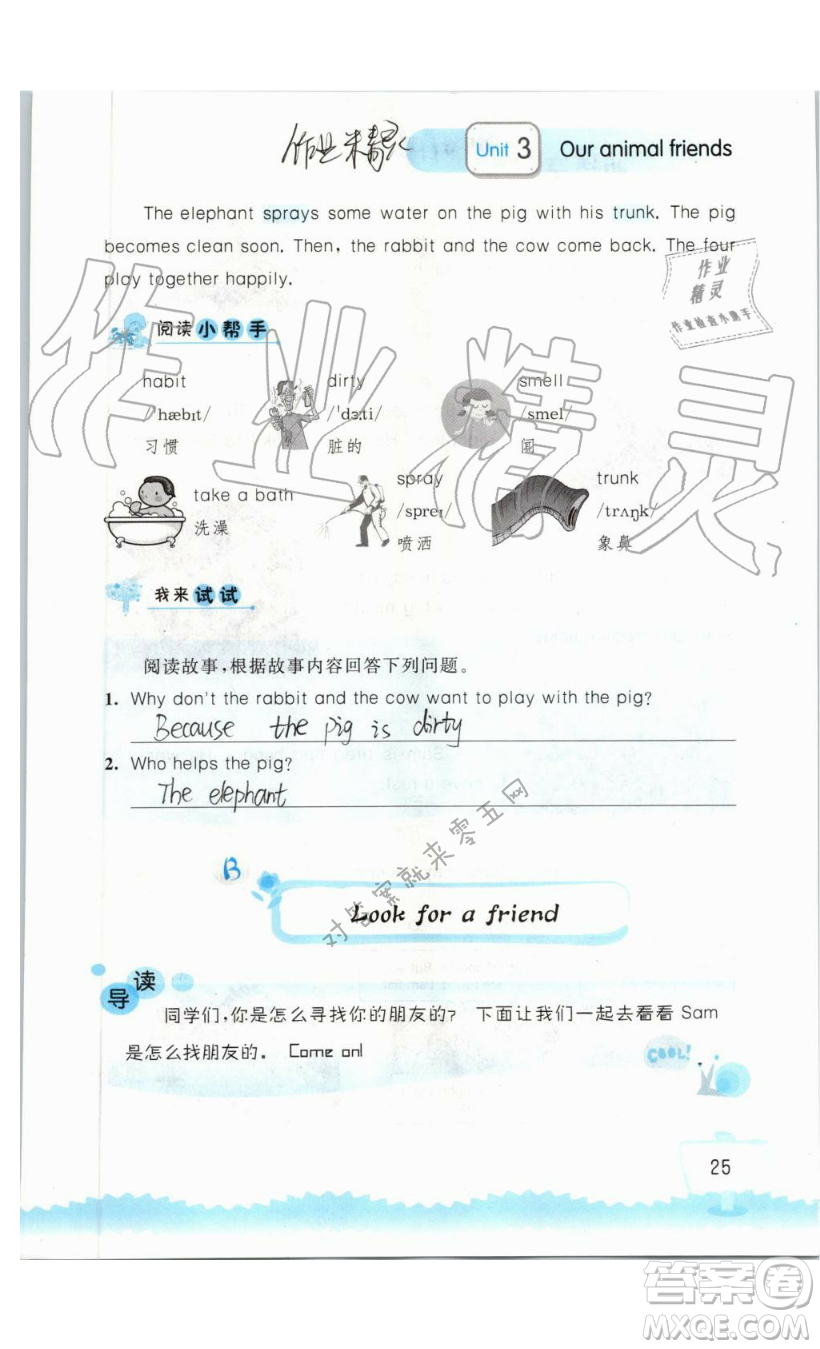 作业精灵
Unit 3 Our animal friends
The elephant sprays some water on the pig with his trunk. The pig
becomes clean soon. Then, the rabbit and the cow come back. The four
play together happily.
作业
精灵
作业检查小助手
阅读小帮手
habit dirty smell
/ˈhæbɪt/ /ˈdɜːti/ /smel/
习惯 脏的 闻
take a bath spray trunk
洗澡 /spreɪ/ /trʌŋk/
喷洒 象鼻
作业精灵
我来试试
阅读故事,根据故事内容回答下列问题。
1. Why don't the rabbit and the cow want to play with the pig?
Because the pig is dirty
2. Who helps the pig?
The elephant
对答案就来零五网
B
Look for a friend
导读
同学们,你是怎么寻找你的朋友的? 下面让我们一起去看看 Sam
是怎么找朋友的. Come on!
COOL!
25
答案卷
MXQE.COM